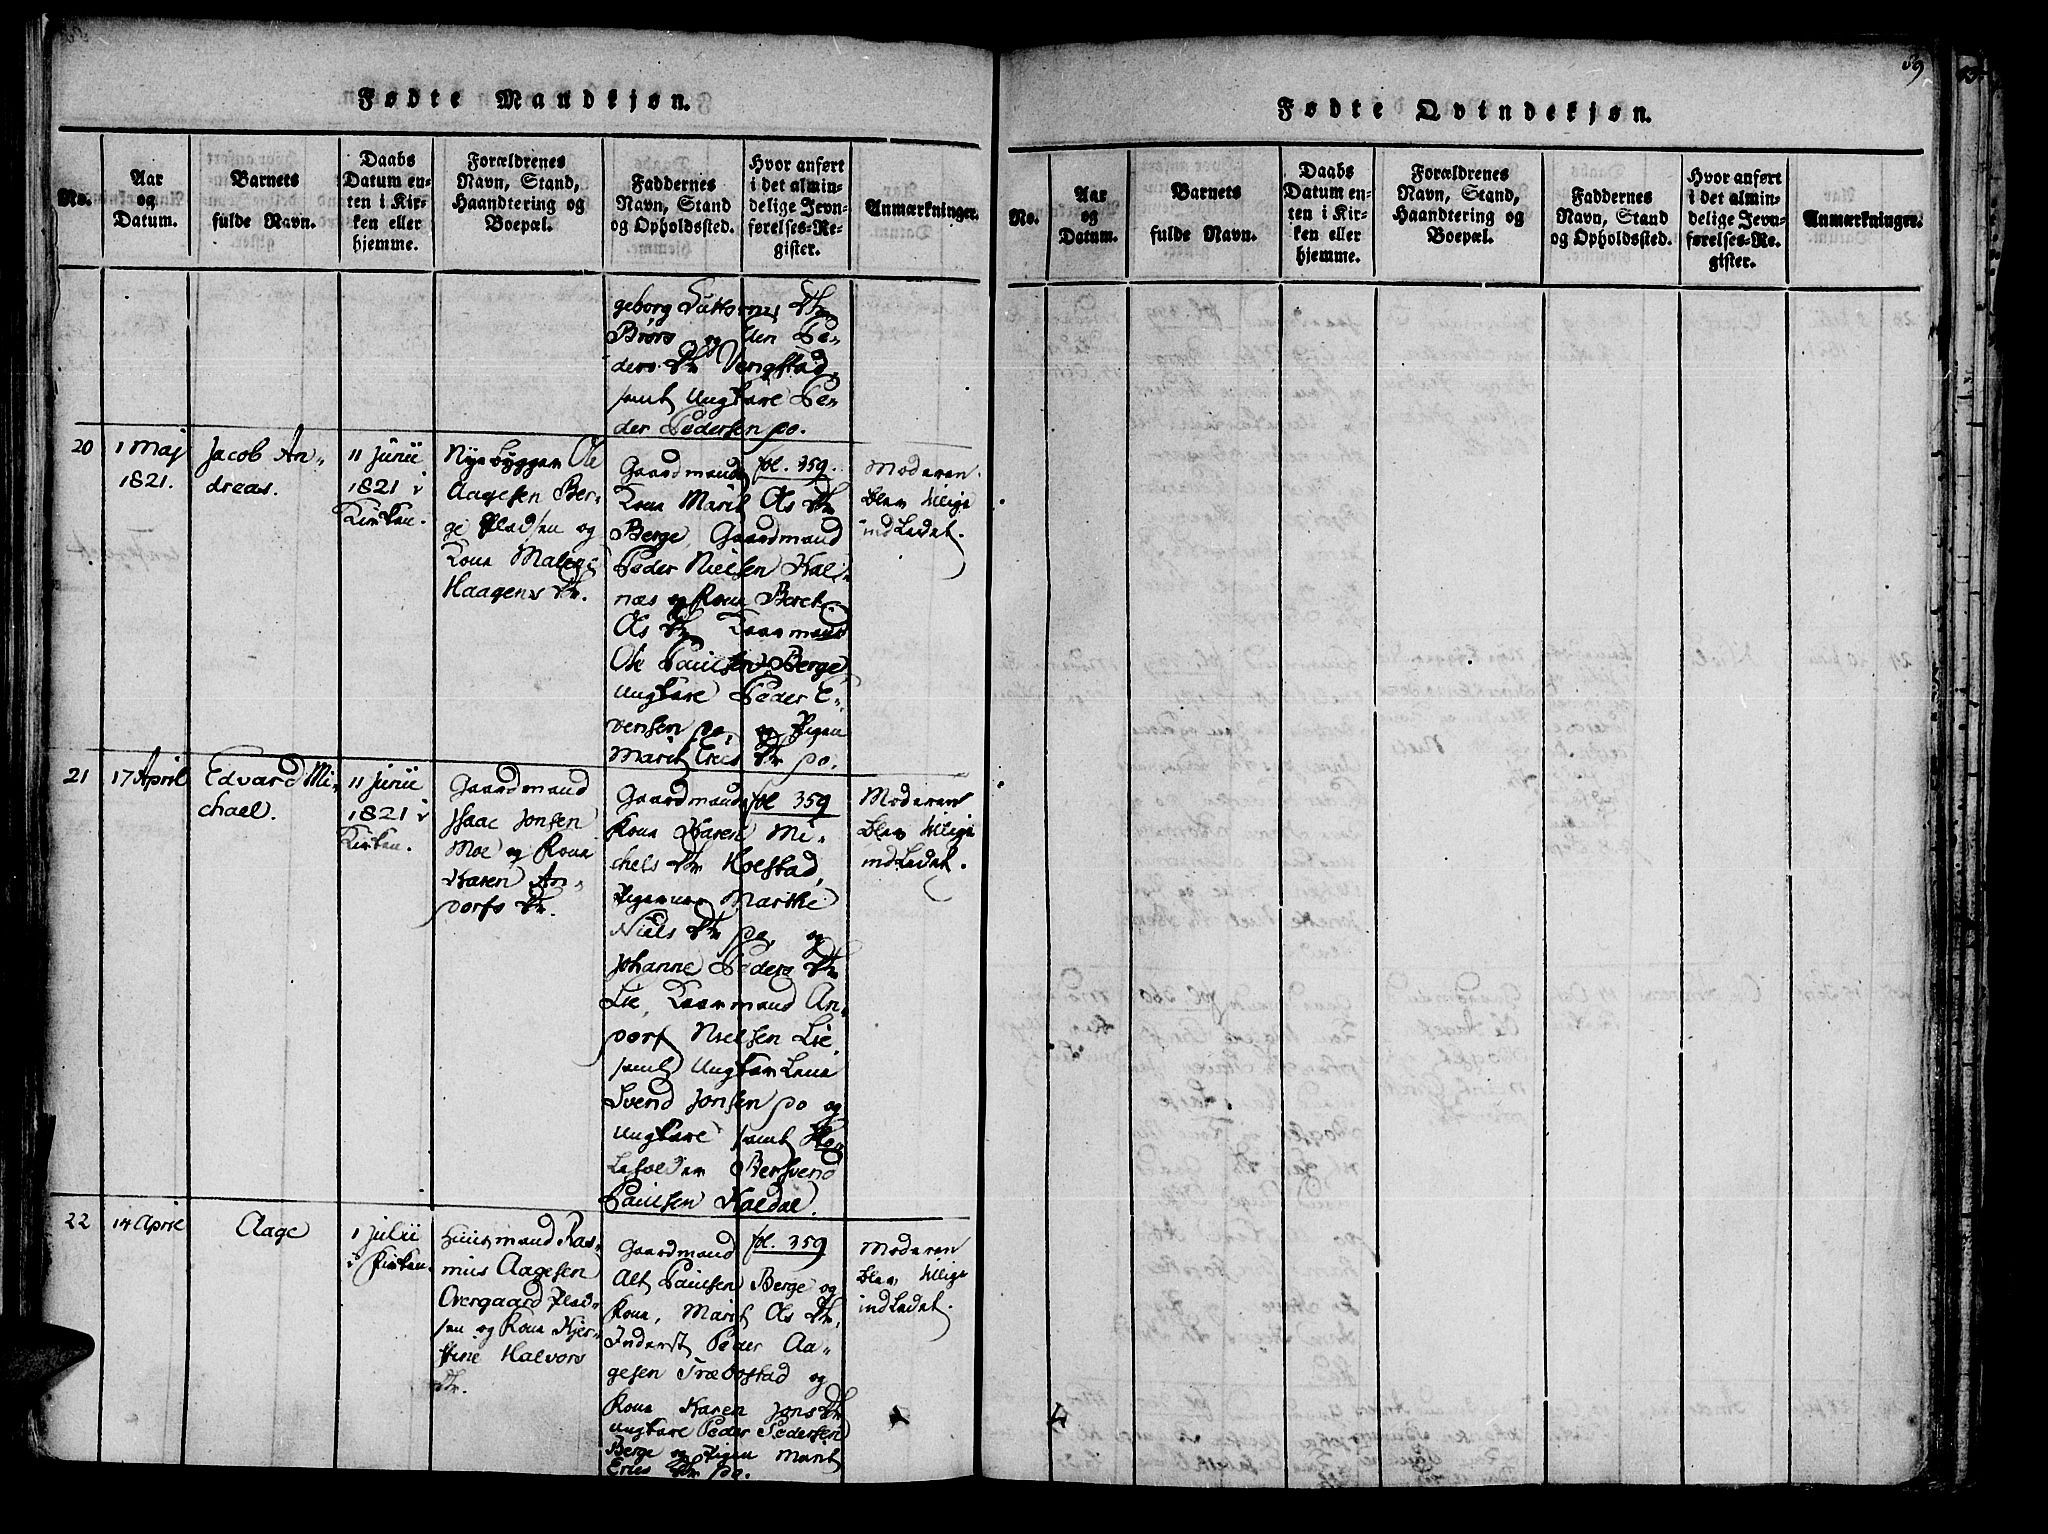 Fødte Mandkjøn.
No.
Aar
og
Datum.
Barnets
fulde Navn.
Daabs
Datum en-
ten i Kir-
ken eller
hjemme.
Forældrenes
Navn, Stand,
Haandtering og
Boepæl.
Faddernes
Navn, Stand
og Opholdssted.
Hvor anført
i det almin-
delige Jevn-
førelses-Re-
gister.
Anmærkninger.
geborg
Brørs og den Pe-
ders Dtr
samt Ungkare Pe-
der Pedersen po.
20
1 Maj
1821.
Jacob An-
dreas.
11 Junii
1821 i
Kirken.
Nye bygger Ole
Aagesen Ber-
ge Pladsen og
Kone
Haagens Dtr.
Gaardmands
Kone Marit Ols Dtr
Berge, Gaardmand
Peder Nielsen Kal-
næs og Kone Beret
Ols Dtr
Ole Paulsen Berge,
Ungkare Peder E-
vensen po, og Pigen
Marit Eries Dtr po.
fol. 359.
Moderen
blev tillige
indledet.
21
17 April
Edvard Mi-
chael.
11 Junii
1821 i
Kirken.
Gaardmand
Isaac Jonsen
Moe og Kone
Karen An-
dorfs Dtr.
Gaardmands
Kone Karen Mi-
chels Dtr Holstad,
Pigerne Marthe
Niels Dtr po, og
Johanne Peders Dtr
Lie, An-
dorf Nielsen Lie,
samt
Svend Jonsen po og
Ungkare samt
Bersvend
Paulsen Kaldal.
fol 359
Moderen
blev tillige
indledet.
22
14 April
Aage
1 Julii
i Kirken.
Huusmand Ras-
mus Aagesen
Overgaard Plad-
sen og Kone Kjer-
stine Halvors
Dtr.
Gaardmand
Alt Paulsen Berge og
Kone, Marit Ols Dtr,
Inderst Peder Aa-
gesen Træbostad og
Kone Karen Jons Dtr
Ungkare Peder Pedersen
Berge og Pigen Marit
Eries Dtr po.
fol. 359
Moderen
blev tillige
indledet.
89
Fødte Qvindekjøn.
No.
Aar
og
Datum.
Barnets
fulde Navn.
Daabs
Datum en-
ten i Kir-
ken eller
hjemme.
Forældrenes
Navn, Stand,
Haandtering og
Boepæl.
Faddernes
Navn, Stand
og Opholdssted.
Hvor anført
i det almin-
delige Jevn-
førelses-Re-
gister.
Anmærkninger.